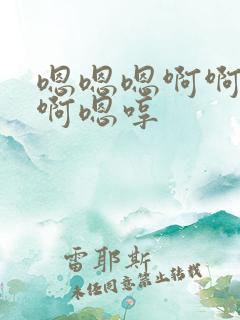 嗯嗯嗯啊啊
啊嗯哼
雷耶斯
未经同意禁止转载